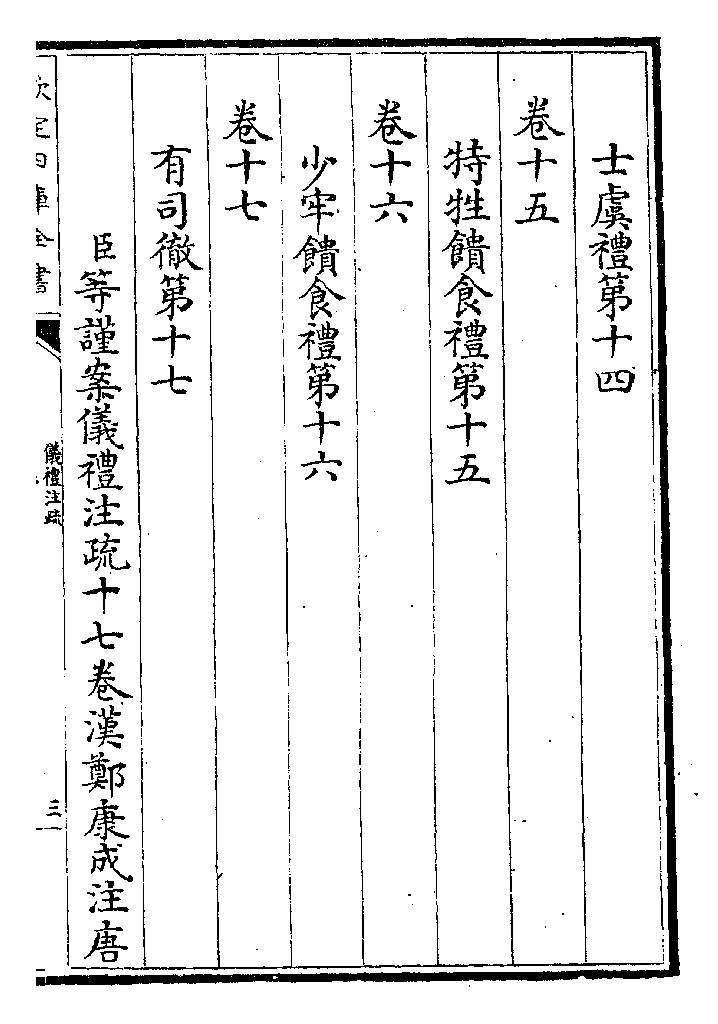 士虞禮第十四
卷十五
特牲饋食禮第十五
卷十六
少牢饋食禮第十六
卷十七
有司徹第十七
臣等謹案儀禮注疏十七卷漢鄭康成注唐
欽定四庫全書
儀禮注疏
三